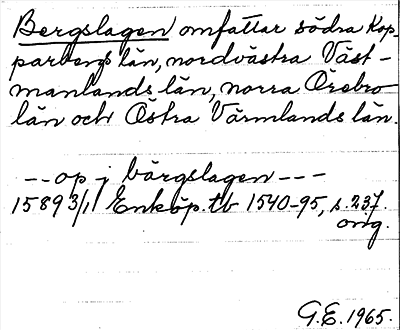 Bergslagen omfattar södra Kop-
parbergs län, nordvästra Väst-
manlands län, norra Örebro
län och Östra Värmlands län.
--- op i bärgslagen ---
1589 3/1 Enköp. tb 1540-95, s. 237.
orig.
G.E. 1965.